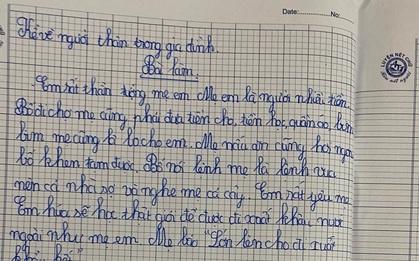 Date: No:
Kể về người thân trong gia đình.
Bài làm.
Em rất thần tượng mẹ em. Mẹ em là người nhiều tiền.
Bố đi chợ mẹ cũng phải đưa tiền cho, tiền học, quần áo,
mẹ cũng lo cho em. Mẹ nấu ăn cũng
bố khen tạm được. Bố nói lệnh mẹ là lệnh vua
nên cả nhà sợ và nghe mẹ cả cây. Em rất yêu mẹ.
Em hứa sẽ học thật giỏi để được đi xuất khẩu nước
ngoài như mẹ em. Mẹ bảo "Lớn lên cho đi xuất
LUYỆN NÉT CHỮ